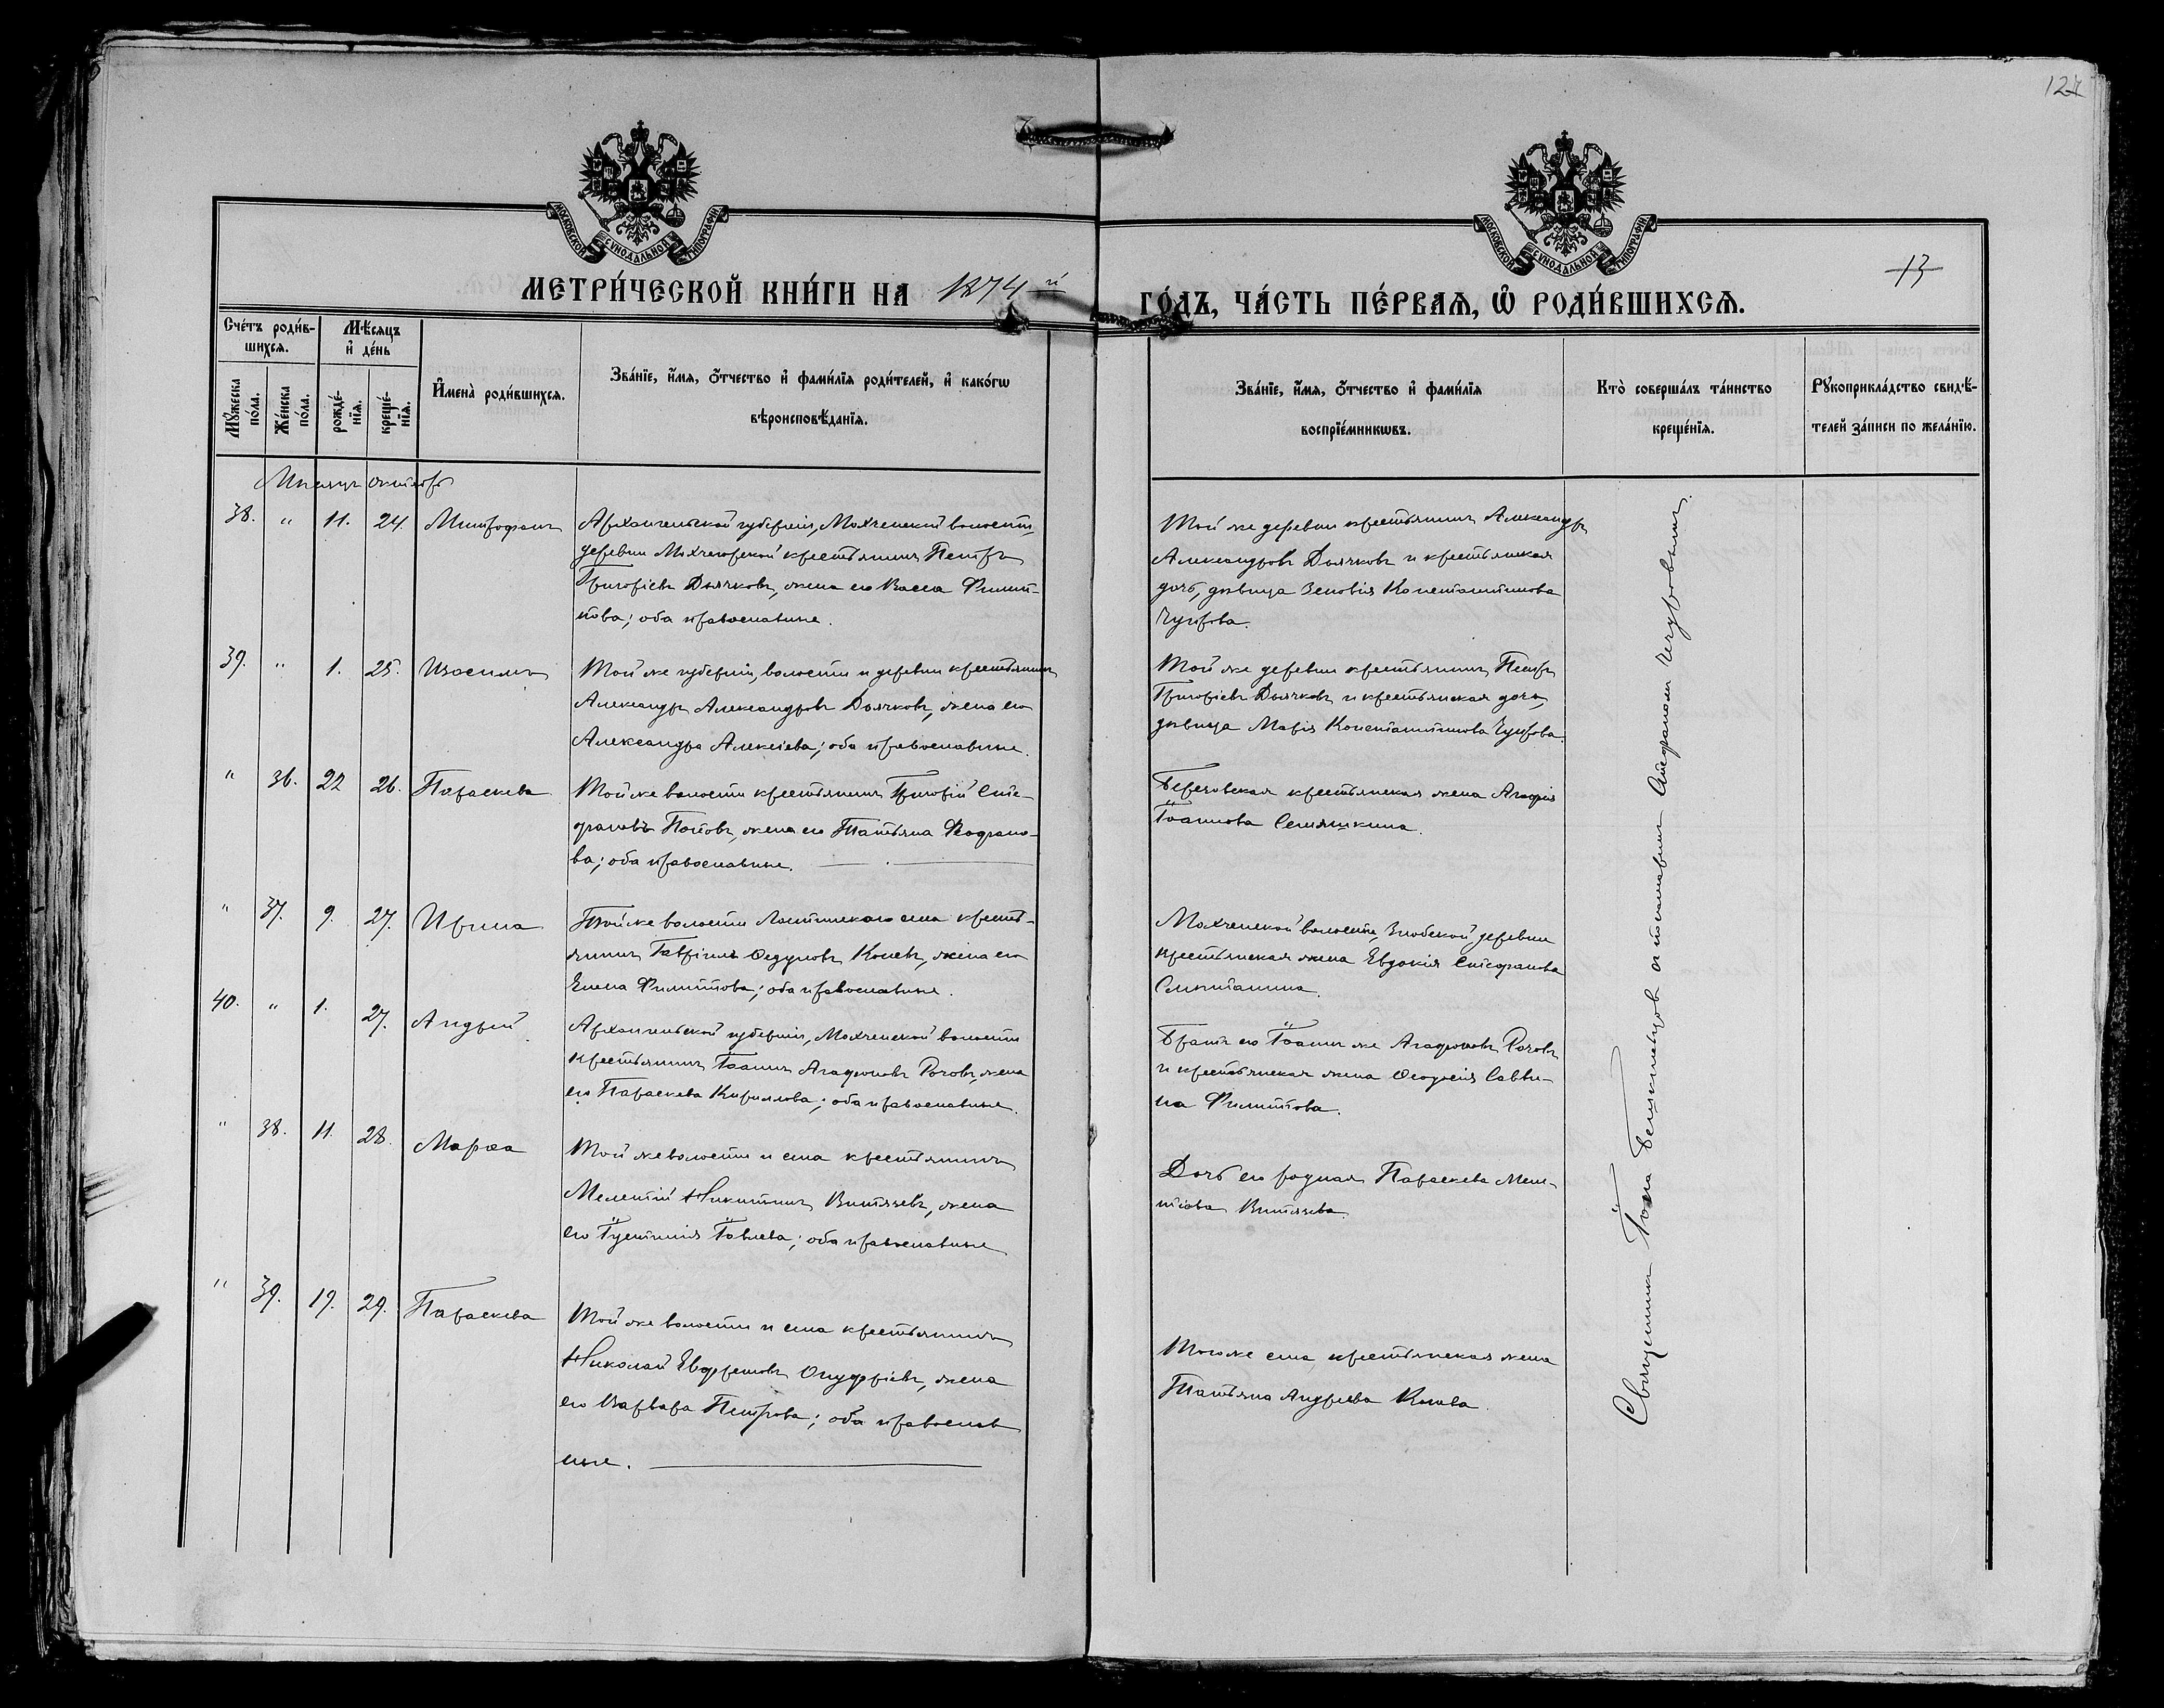 124
МОСКОВСКОЙ СѴНОДАЛЬНОЙ ТИПОГРАФІИ
МОСКОВСКОЙ СѴНОДАЛЬНОЙ ТИПОГРАФІИ
13
МЕТРИ́ЧЕСКОЙ КНИ́ГИ НА 1874 й
ГО́ДЪ, ЧА́СТЬ ПЕ́РВАѦ, Ѡ҆ РОДИ́ВШИХСѦ.
Сче́тъ роди́вшихсѧ.
Мꙋ́жеска по́ла.
Же́нска по́ла.
Мѣ́сѧцъ и҆ де́нь
рожде́нїѧ.
креще́нїѧ.
И҆мена̀ роди́вшихсѧ.
Зва́нїе, и҆́мѧ, ѻ҆́тчество и҆ фами́лїѧ роди́телей, и҆ како́гѡ
вѣроисповѣ́данїѧ.
Зва́нїе, и҆́мѧ, ѻ҆́тчество и҆ фами́лїѧ
воспрїе́мникѡвъ.
Кто̀ соверша́лъ та́инство
креще́нїѧ.
Рꙋкоприкла́дство свидѣ́-
телей за́писи по жела́нїю.
Мѣсяцъ Октябрь
38. " 11. 24. Митрофанъ
Архангельской губерніи, Мохченской волости,
деревни Мохченской крестьянинъ Петръ
Григорьевъ Дьячковъ, жена его Васса Филип-
пова; оба православные.
Той же деревни крестьянинъ Александръ
Александровъ Дьячковъ и крестьянская
дочь, дѣвица Зеновія Константинова
Чупрова.
39. " 1. 25. Изосимъ
Той же губерніи, волости и деревни крестьянинъ
Александръ Александровъ Дьячковъ, жена его
Александра Алексіева; оба православные.
Той же деревни крестьянинъ Петръ
Григорьевъ Дьячковъ и крестьянская дочь,
дѣвица Марія Константинова Чупрова.
" 36. 22 26. Параскева
Той же волости крестьянинъ Григорій Сте-
фановъ Поповъ, жена его Татьяна Ѳеофано-
ва; оба православные.
Березовская крестьянская жена Агафія
Іоаннова Семяшкина.
" 37. 9. 27. Ирина
Той же волости села крестья-
нинъ Гавріилъ Ѳедуловъ Коневъ, жена его
Елена Филиппова; оба православные.
Мохченской волости, деревни
крестьянская жена Евдокія Стефанова
40. " 1. 27. Андрей
Архангельской губерніи, Мохченской волости
крестьянинъ Іоаннъ Агафоновъ Рочевъ, жена
его Параскева Кириллова; оба православные.
Братъ его Іоаннъ же Агафоновъ Рочевъ
и крестьянская жена Ѳеодосія Савви-
на Филиппова.
" 38. 11. 28. Марѳа
Той же волости и села крестьянинъ
Мелетій Никитинъ Витязевъ, жена
его Іустинія Іовлева; оба православные
Дочь его родная Параскева Меле-
тіева Витязева.
" 39. 19. 29. Параскева
Той же волости и села крестьянинъ
Николай Евфремовъ Онуфріевъ, жена
его Варвара Петрова; оба православ
ные.
Того же села, крестьянская жена
Татьяна Андреева Конева.
Священникъ Іона съ псаломщикомъ Стефаномъ Чупровымъ.